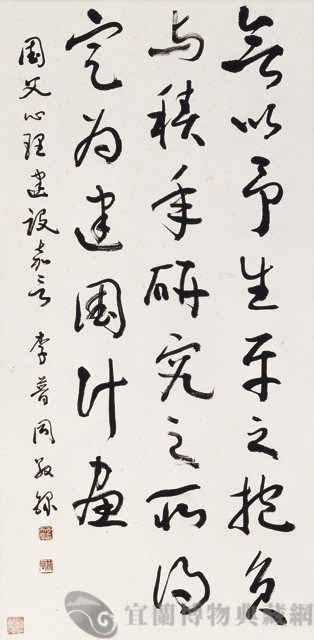 兼以予生平之抱負
与積年研究之所得
定為建國計畫
國父心理建設嘉言 李普同敬錄
宜蘭博物典藏網